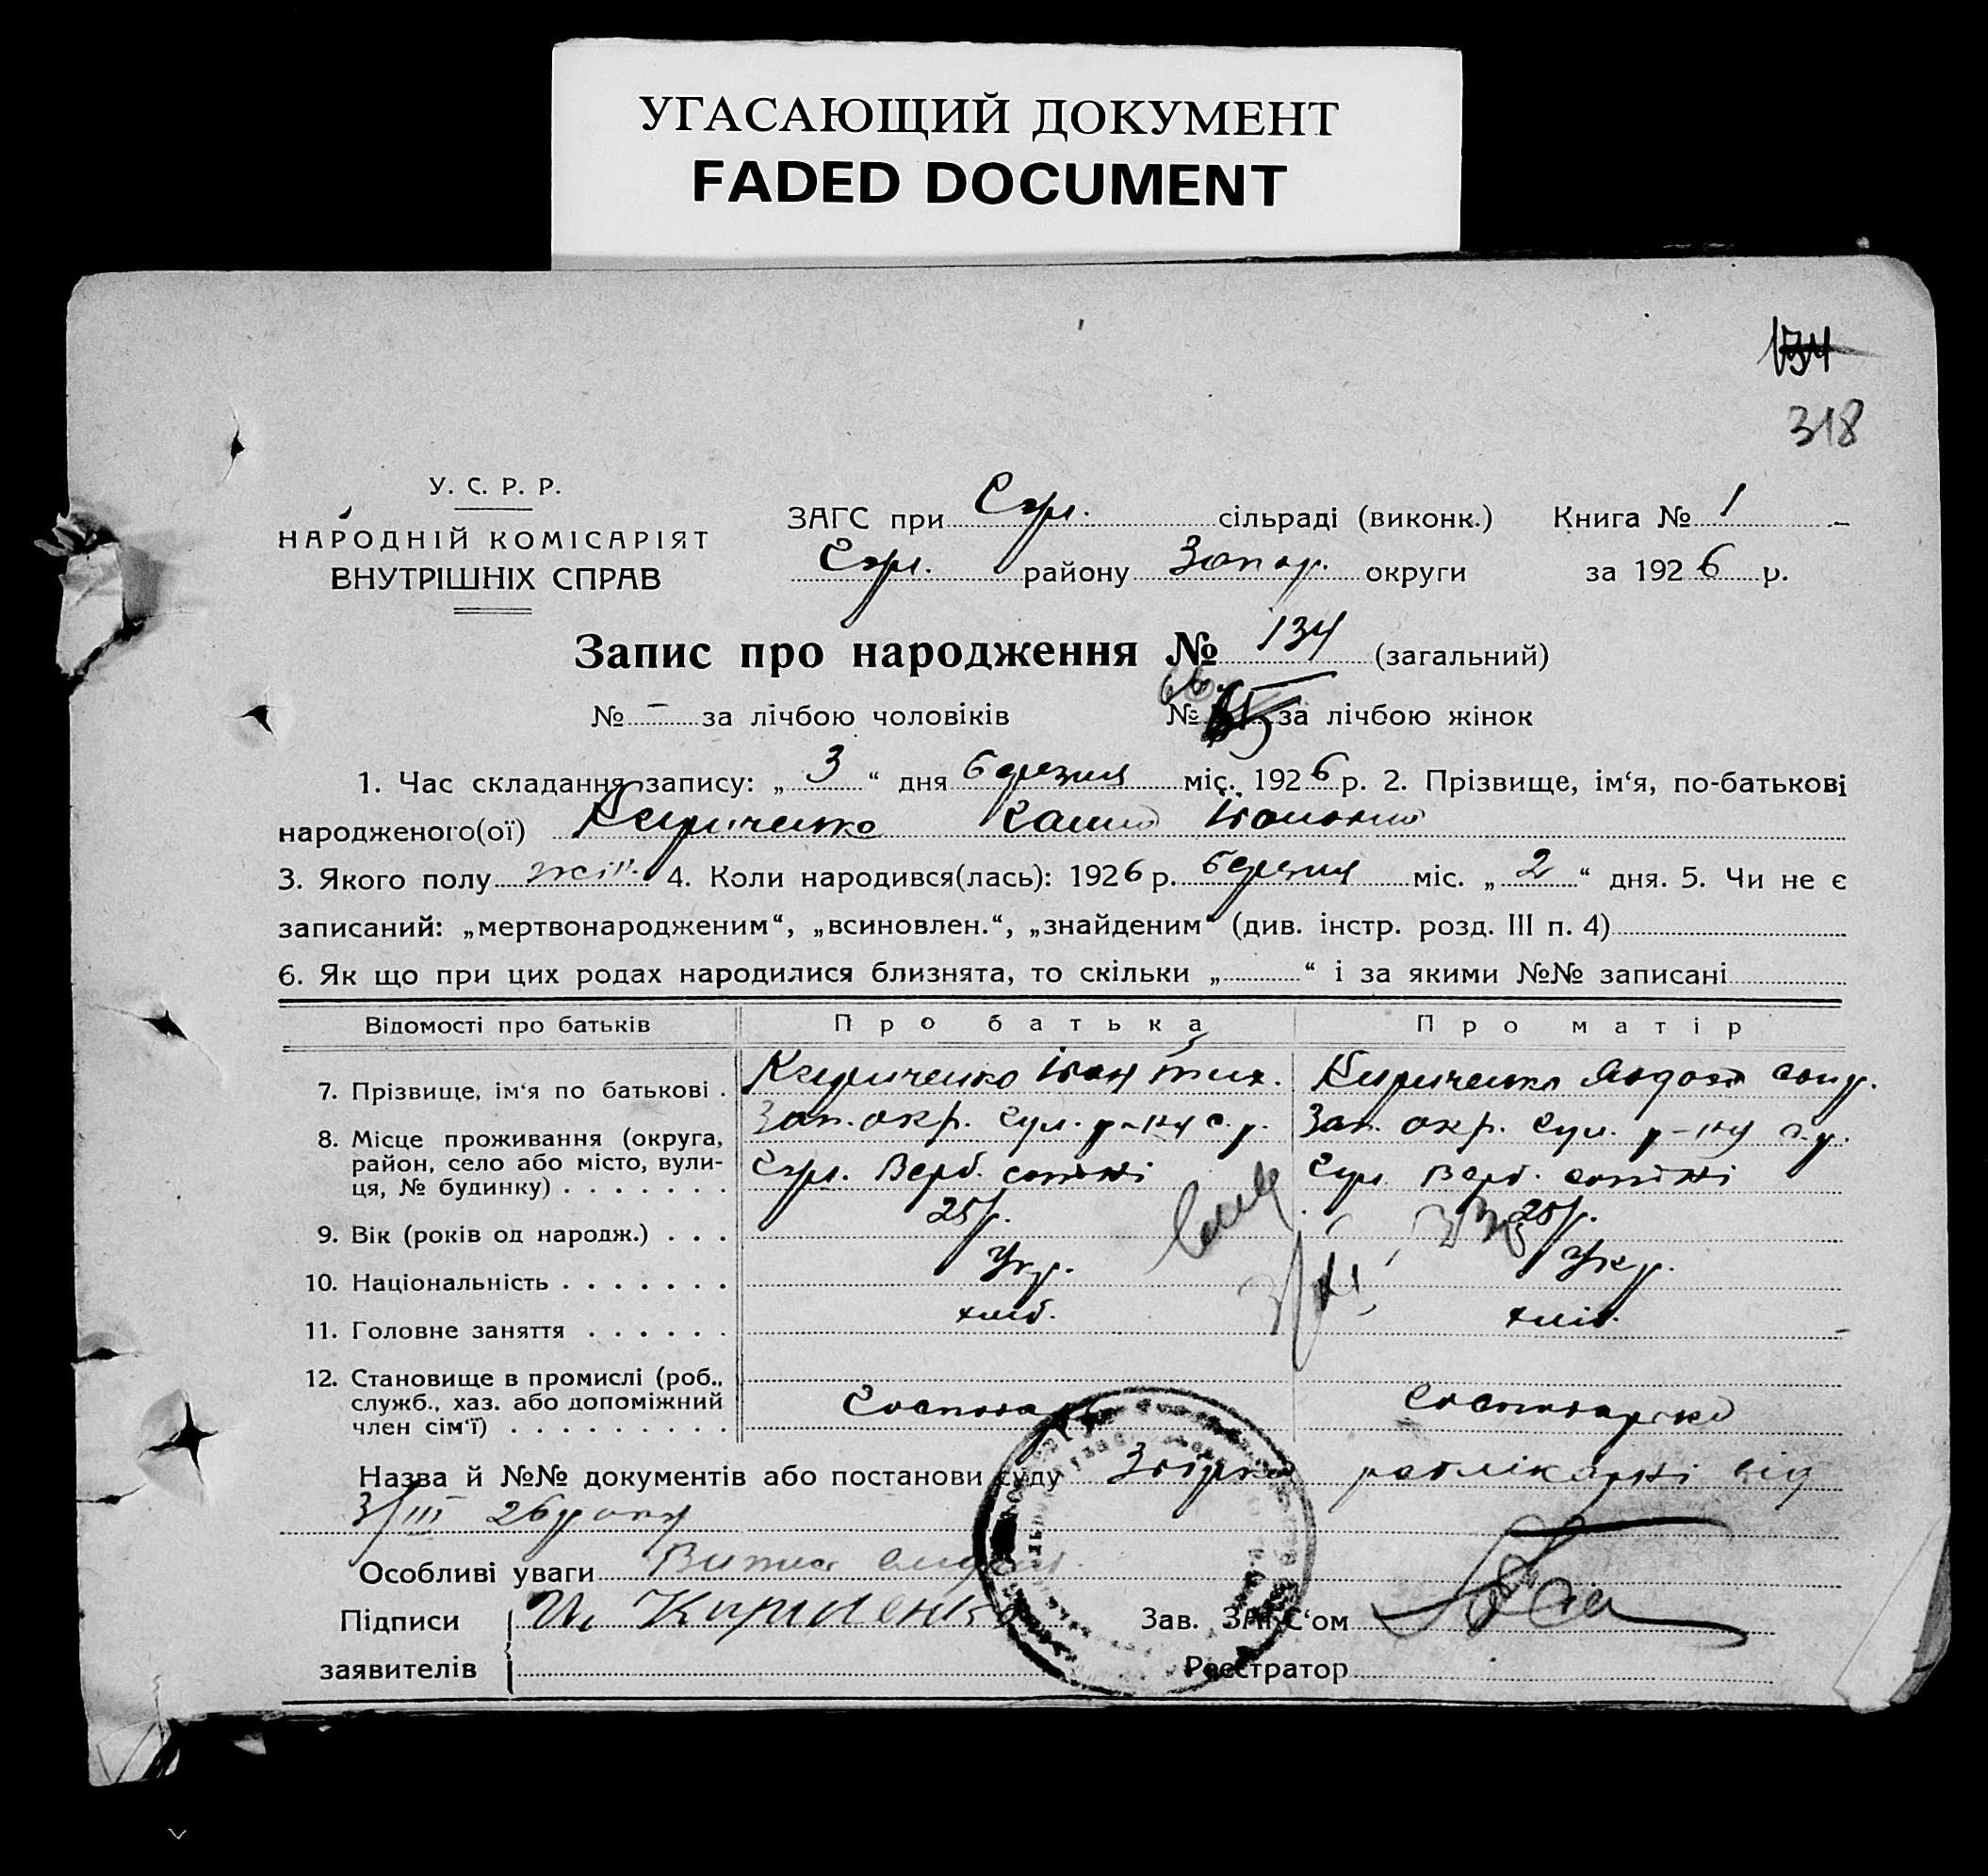 УГАСАЮЩИЙ ДОКУМЕНТ
FADED DOCUMENT
134
318
У. С. Р. Р.
НАРОДНІЙ КОМІСАРІЯТ
ВНУТРІШНІХ СПРАВ
ЗАГС при сільраді (виконк.) Книга № 1
району Запор. округи за 1926 р.
Запис про народження № 134 (загальний)
№ - за лічбою чоловіків № за лічбою жінок
1. Час складання запису: „ 3 “ дня березня міс. 1926 р. 2. Прізвище, ім‘я, по-батькові
народженого(ої) Кириченко
3. Якого полу жін. 4. Коли народився(лась): 1926 р. березня міс. „ 2 “ дня. 5. Чи не є
записаний: „мертвонародженим“, „всиновлен.“, „знайденим“ (див. інстр. розд. III п. 4)
6. Як що при цих родах народилися близнята, то скільки „ “ і за якими №№ записані
Відомості про батьків Про батька Про матір
7. Прізвище, ім‘я по батькові . Кириченко Іван тих. Кириченко
8. Місце проживання (округа, Зап. окр. р-ну с. р. Зап. окр. р-ну
район, село або місто, вули- Верб. сотні Верб. сотні
ця, № будинку) . . . . . . .
9. Вік (років од народж.) . . . 25 р. 25 р.
10. Національність . . . . . . . Укр. Укр.
11. Головне заняття . . . . . . хліб. хліб.
12. Становище в промислі (роб.,
служб., хаз. або допоміжний Господарь Господарка
член сім‘ї) . . . . . . . . . .
Назва й №№ документів або постанови суду від
3/III 26 року
Особливі уваги Витяг
Підписи И. Кириченко Зав. ЗАГС‘ом
заявителів Реєстратор